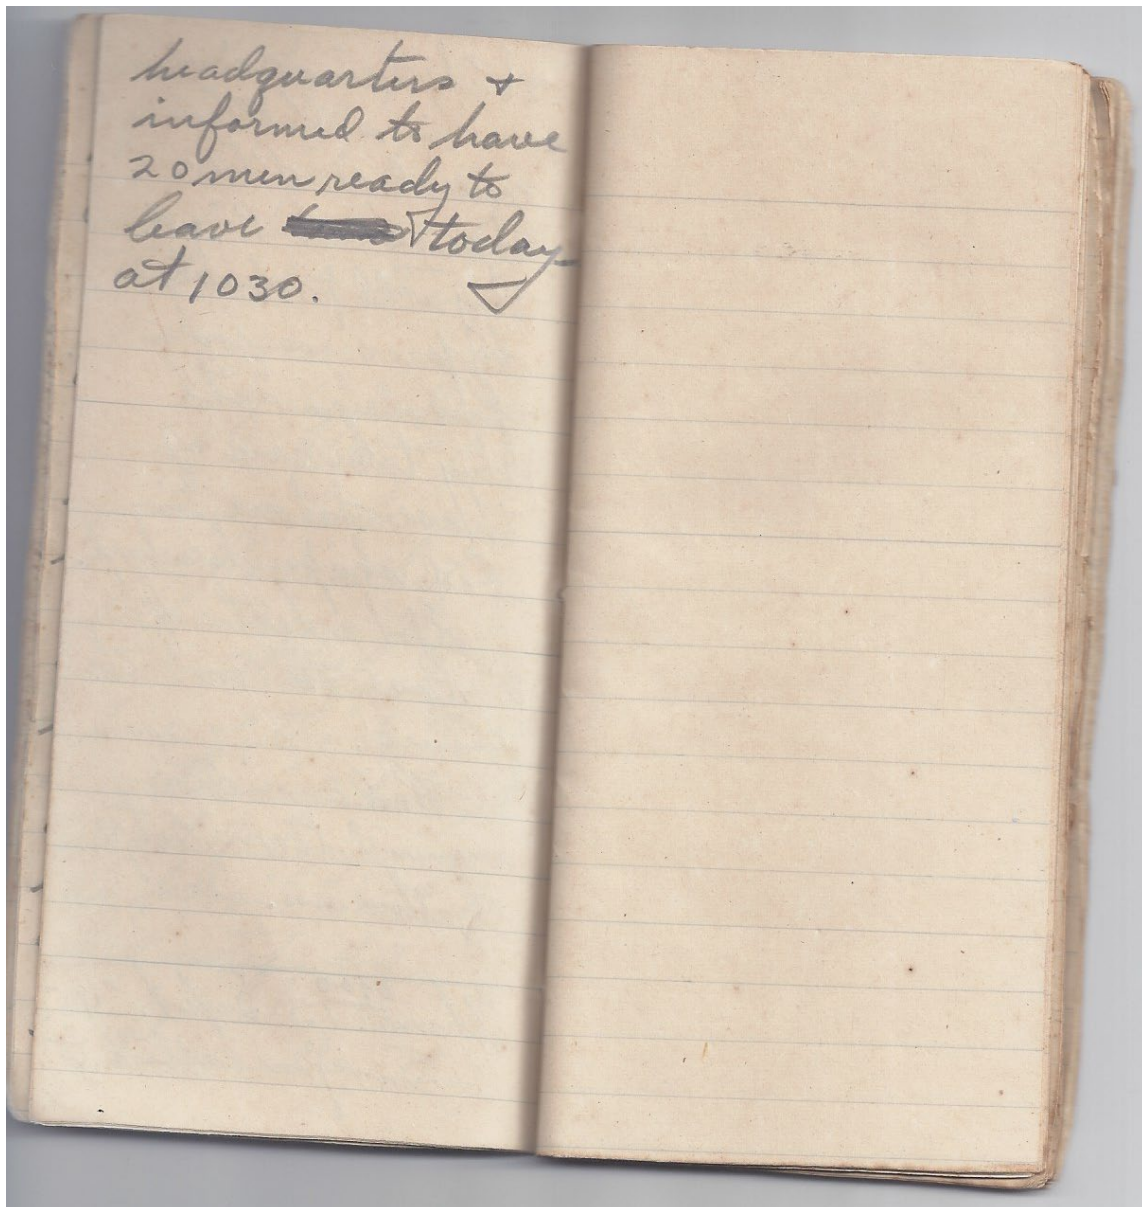 headquarters +
informed to have
20 men ready to
leave today
at 1030.